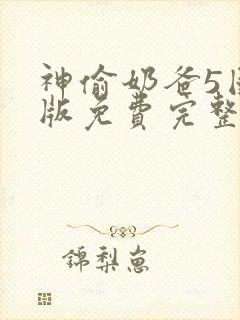 神偷奶爸5国
版免费完整
錦梨崽